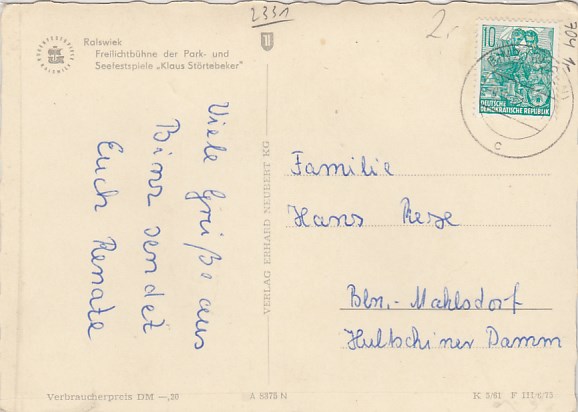 2331
2.-
704 1.-
Ralswiek
Freilichtbühne der Park- und
Seefestspiele „Klaus Störtebeker"
RALSWIEK
10
DEUTSCHE
DEMOKRATISCHE REPUBLIK
c
Viele Grüße aus
Binz sendet
Euch Renate
VERLAG ERHARD NEUBERT KG
Familie
Hans
Bln.- Mahlsdorf
Hultschiner Damm
Verbraucherpreis DM —,20
A 8375 N
K 5/61 F III/6/15